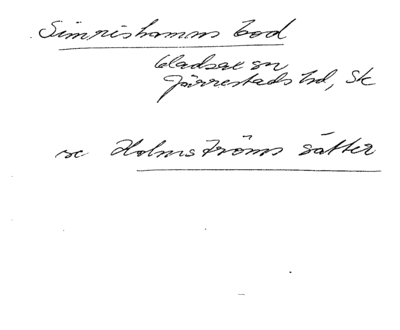 Simrishamns bod
Gladsax sn
Järrestads hd, Sk
se Holmströms sätter